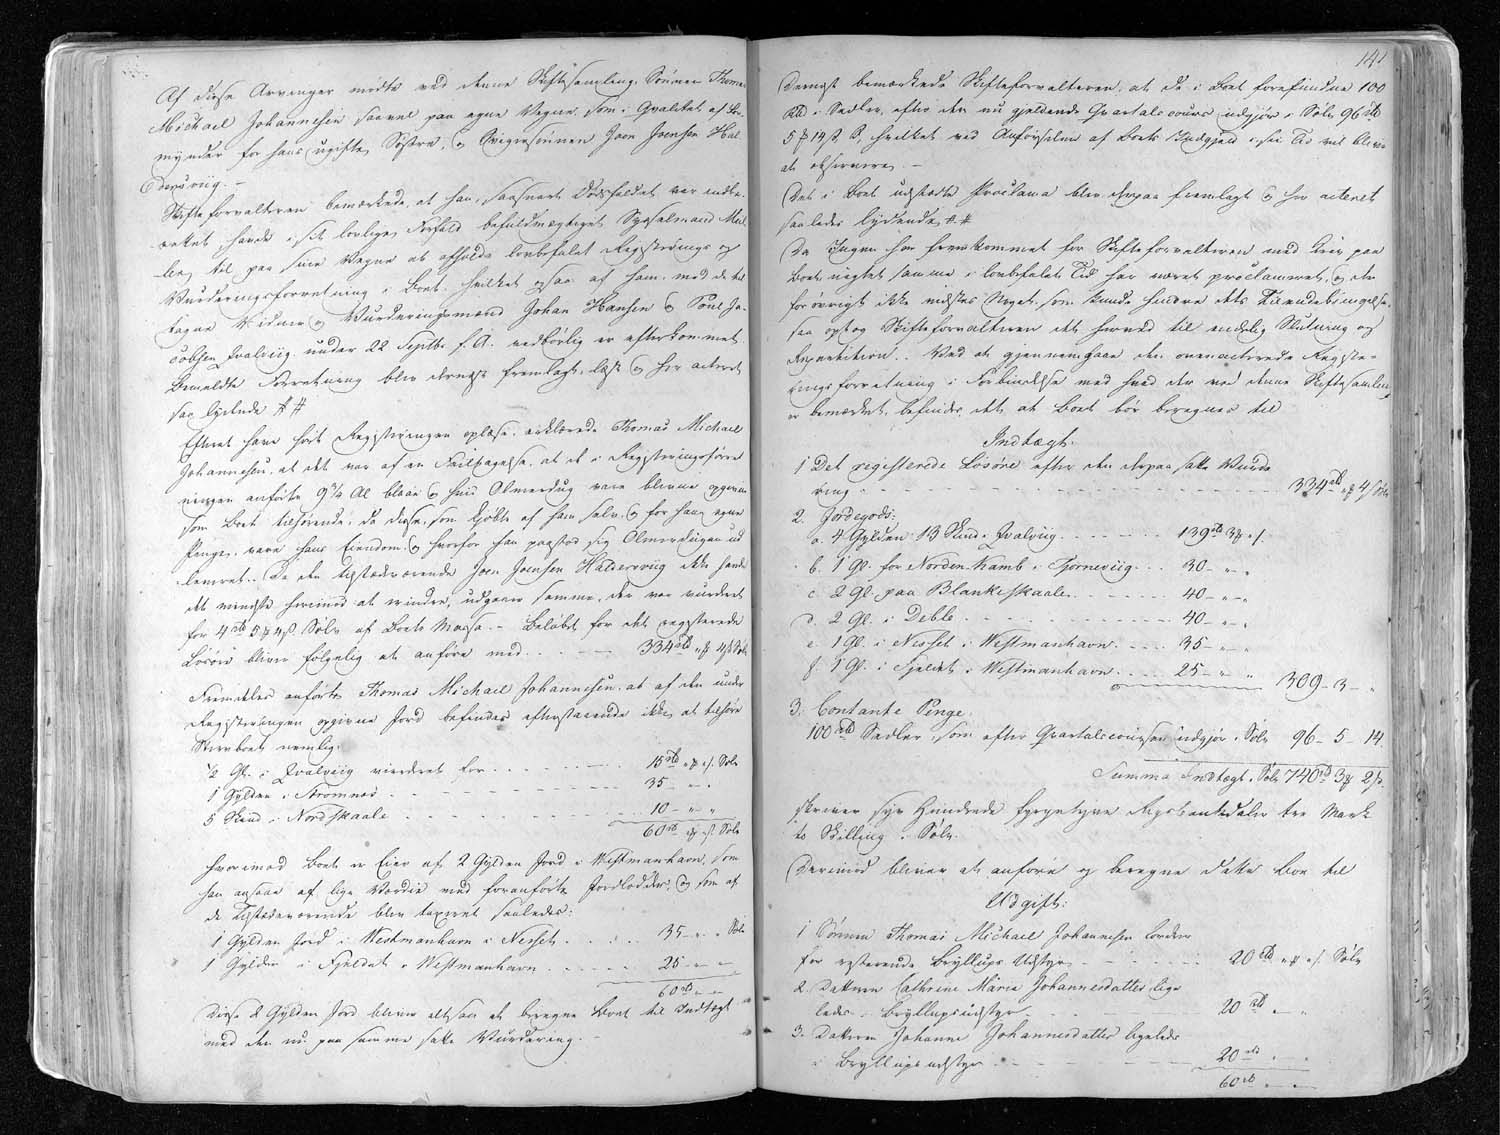 Af disse Arvinger mødte ved denne Skiftesamling Sønnen Thomas
Michael Johannesen saavel paa egne Vegne, som i Qvalitet af For-
mynder for hans ugifte Søstre, og Svigersønnen Joen Joensen Hal-
dersviig. -
Skifteforvalteren bemærkede, at han, saasnart Dødsfaldet var indbe-
rettet, havde i sit lovlige Forfald befuldmægtiget Sysselmand Mül-
ler til paa sine Vegne at afholde lovbefalet Registrerings og
Vurderingsforretning i Boet, hvilket ogsaa af ham med de til-
tagne Vidner og Vurderingsmænd Johan Hansen og Poul Ja-
cobsen Qvalviig under 22 Septbr f. A. vedbørlig er efterkommet.
Bemeldte Forretning blev dernæst fremlagt, læst og her acteret
saa lydende ##
Efterat have hørt Registreringen oplæse, erklærede Thomas Michael
Johannesen, at det var af en Feiltagelse, at de i Registreringsforret-
ningen anførte 9¾ Al blaae og hvid Olmerdug vare blevne opgivne
som Boet tilhørende, da disse, som kjøbte af ham selv og for hans egne
Penge, vare hans Eiendom, og hvorfor han paastod sig Olmerdugen ud-
leveret. Da den tilstedeværende Joen Joensen Haldersviig ikke havde
det mindste herimod at erindre, udgaaer samme, der var vurderet
for 4 rbd 5 ₥ 4 ß Sølv af Boets Massa. - Beløbet for det registrerede
Løsøre bliver følgelig at anføre med . . . - 334 rbd „ ₥ 4 ß Sølv
Fremdeles anførte Thomas Michael Johannesen, at af den under
Registreringen opgivne Jord befindes efterstaaende ikke at tilhøre
Stervboet nemlig:
½ Gl. i Qvalviig vurderet for . . . . . 15 rbd „ ₥ „ ß Sølv
1 Gylden i Strømnæs . . . . . 35 - „ - „
5 Skind i Nordskaale . . . . . 10 - „ - „
60 rbd „ ₥ „ ß Sølv
hvorimod Boet er Eier af 2 Gylden Jord i Westmanhavn, som
han ansaae af lige Værdie med foranførte Jordlodder, og som af
de Tilstedeværende blev taxeret saaledes:
1 Gylden Jord i Westmanhavn i Nesset . . . . 35 - „ - „ Sølv
1 Gylden i Fjeldet i Westmanhavn . . . . . 25 - „ - „
60 rbd „ - „
Disse 2 Gylden Jord bliver altsaa at beregne Boet til Indtægt
med den nu paa samme satte Vurdering. -
141
Dernæst bemærkede Skifteforvalteren, at de i Boet forefundne 100
Rbd i Sedler, efter den nu gjeldende Qvartalscours, udgjør i Sølv 96 rbd
5 ₥ 14 ß, hvilket ved Anførselen af Boets Indgjeld i sin Tid vil blive
at observere. -
Det i Boet udstædte Proclama blev derpaa fremlagt og her acteret
saaledes lydende ##
Da Ingen har fremkommet for Skifteforvalteren med Krav paa
Boet, uagtet samme i lovbefalet Tid har været proclameret, og der
forøvrigt ikke vidstes Noget, som kunde hindre dets Tilendebringelse,
saa optog Skifteforvalteren det herved til endelig Slutning og
Repartition. Ved at gjennemgaae den ovenacterede Registe-
ringsforretning i Forbindelse med hvad der ved denne Skiftesamling
er bemærket, befindes det, at Boet bør beregnes til
Indtægt.
1 Det registrerede Løsøre efter den derpaa satte Vurde-
ring . . . . . 334 rbd „ ₥ 4 ß Sølv
2. Jordegods:
a. 4 Gylden 13 Skind i Qvalviig . . . . . 139 rbd 3 ₥ „ ß.
b. 1 Gl. for Norden Kamb i Tjørneviig . . . 30 - „ - „
c 2 Gl. paa Blankeskaale . . . . 40 - „ - „
d. 2 Gl. i Deble . . . . . 40 - „ - „
e. 1 Gl. i Nesset i Westmanhavn . . . . 35 - „ - „
f. 1 Gl. i Fjeldet i Westmanhavn . . . . 25 - „ - „ 309 - 3 - „
3. Contante Penge.
100 rbd Sedler, som efter Qvartalscoursen udgjør i Sølv 96 - 5 - 14.
Summa Indtægt i Sølv 740 rbd 3 ₥ 2 ß.
skriver syv Hundrede fyrgetyve Rigsbankdaler tre Mark
to Skilling i Sølv.
Derimod bliver at anføre og beregne dette Boe til
Udgift:
1 Sønnen Thomas Michael Johannesen
for resterende Bryllups Udstyr . . . . . 20 rbd „ ₥ „ ß. Sølv
2. Datteren Cathrine Maria Johannesdatter lige-
ledes i Bryllupsudstyr . . . . . 20 rbd „ - „
3. Datteren Johanne Johannesdatter ligeledes
i Bryllupsudstyr . . . . . 20 rbd „ - „
60 rbd „ - „